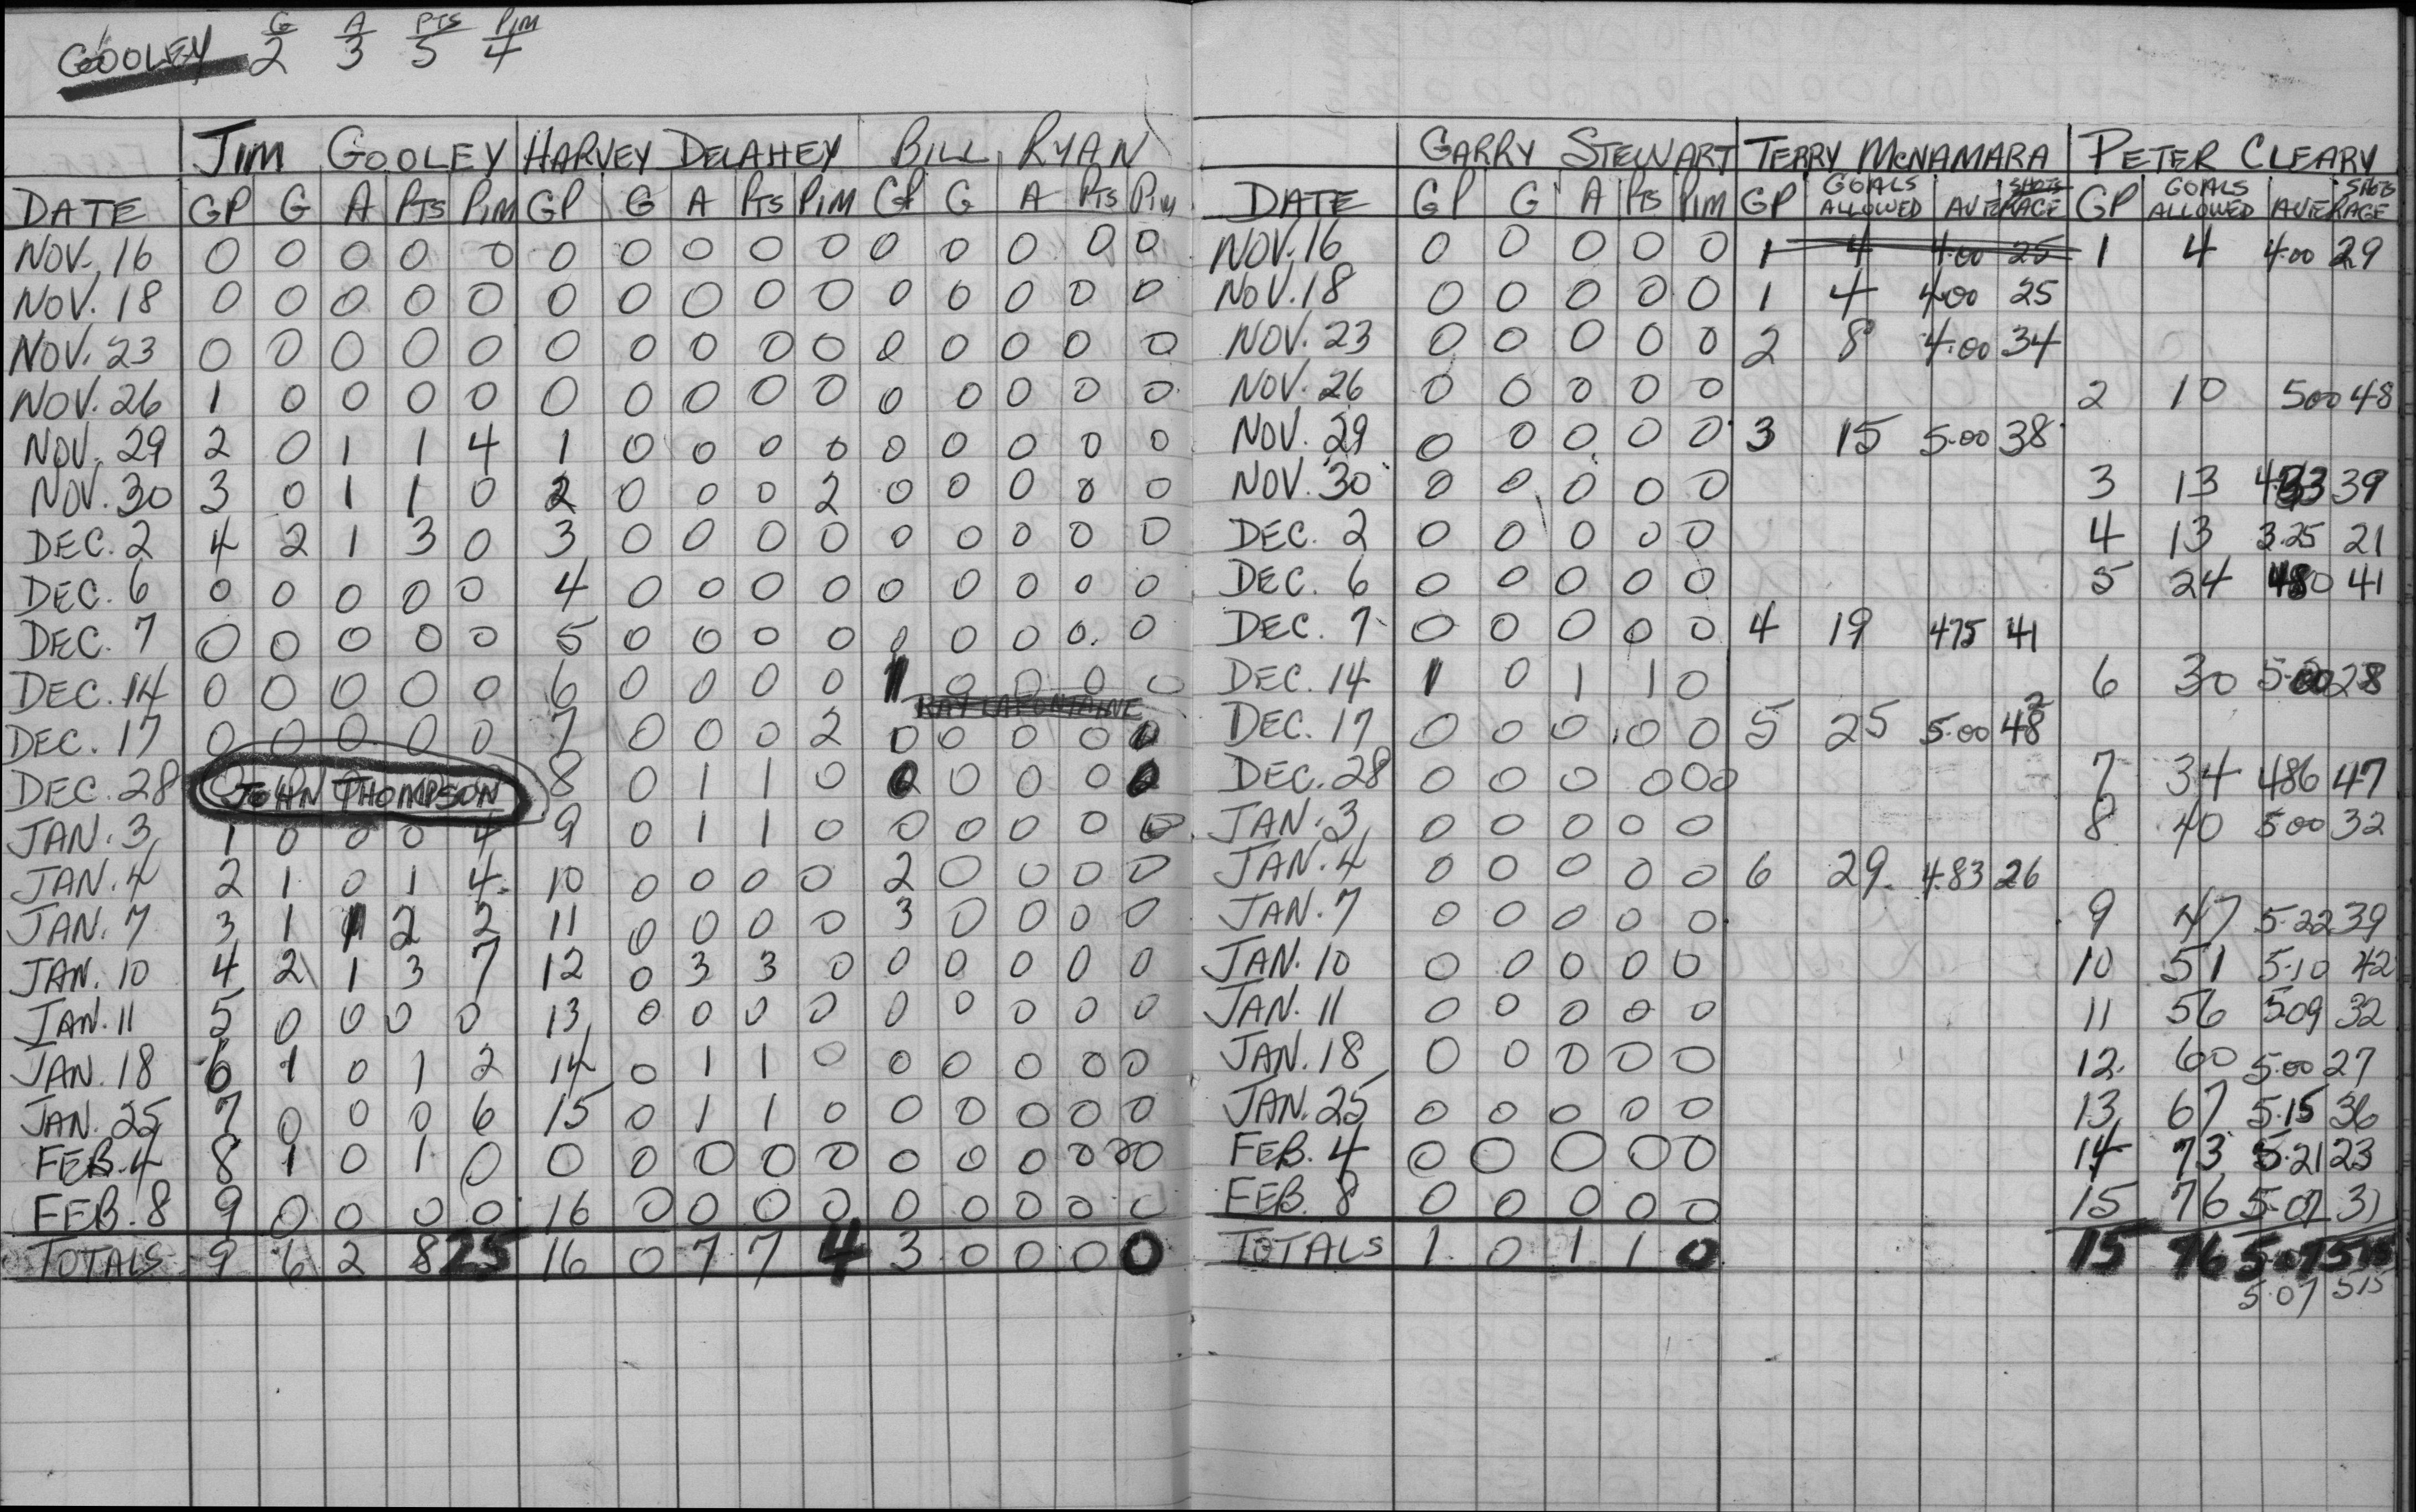 G A PTS PIM
GOOLEY 2 3 5 4
JIM GOOLEY HARVEY DELAHEY BILL RYAN
DATE GP G A PTS PIM GP G A PTS PIM GP G A PTS PIM
NOV. 16 0 0 0 0 0 0 0 0 0 0 0 0 0 0 0
NOV. 18 0 0 0 0 0 0 0 0 0 0 0 0 0 0 0
NOV. 23 0 0 0 0 0 0 0 0 0 0 0 0 0 0 0
NOV. 26 1 0 0 0 0 0 0 0 0 0 0 0 0 0 0
NOV. 29 2 0 1 1 4 1 0 0 0 0 0 0 0 0 0
NOV. 30 3 0 1 1 0 2 0 0 0 2 0 0 0 0 0
DEC. 2 4 2 1 3 0 3 0 0 0 0 0 0 0 0 0
DEC. 6 0 0 0 0 0 4 0 0 0 0 0 0 0 0 0
DEC. 7 0 0 0 0 0 5 0 0 0 0 0 0 0 0. 0
DEC. 14 0 0 0 0 0 6 0 0 0 0 1 0 0 0 0
RAY LAFONTAINE
DEC. 17 0 0 0 0 0 7 0 0 0 2 0 0 0 0 0
DEC. 28 JOHN THOMPSON 8 0 1 1 0 0 0 0 0 0
JAN. 3 1 0 0 0 4 9 0 1 1 0 0 0 0 0 0
JAN. 4 2 1 0 1 4 10 0 0 0 0 2 0 0 0 0
JAN. 7 3 1 1 2 2 11 0 0 0 0 3 0 0 0 0
JAN. 10 4 2 1 3 7 12 0 3 3 0 0 0 0 0 0
JAN. 11 5 0 0 0 0 13 0 0 0 0 0 0 0 0 0
JAN. 18 6 1 0 1 2 14 0 1 1 0 0 0 0 0 0
JAN. 25 7 0 0 0 6 15 0 1 1 0 0 0 0 0 0
FEB. 4 8 1 0 1 0 0 0 0 0 0 0 0 0 0 0 0
FEB. 8 9 0 0 0 0 16 0 0 0 0 0 0 0 0 0
TOTALS 9 6 2 8 25 16 0 7 7 4 3 0 0 0 0
GARRY STEWART TERRY MCNAMARA PETER CLEARY
DATE GP G A PTS PIM GP GOALS ALLOWED AVERAGE SHOTS GP GOALS ALLOWED AVERAGE SHOTS
NOV. 16 0 0 0 0 0 1 4 4.00 25 1 4 4.00 29
NOV. 18 0 0 0 0 0 1 4 4.00 25
NOV. 23 0 0 0 0 0 2 8 4.00 34
NOV. 26 0 0 0 0 0 2 10 500 48
NOV. 29 0 0 0 0 0 3 15 5.00 38
NOV. 30 0 0 0 0 0 3 13 4.33 39
DEC. 2 0 0 0 0 0 4 13 3.25 21
DEC. 6 0 0 0 0 0 5 24 480 41
DEC. 7 0 0 0 0 0 4 19 475 41
DEC. 14 1 0 1 1 0 6 30 5.00 28
DEC. 17 0 0 0 0 0 5 25 5.00 48 2
DEC. 28 0 0 0 0 0 0 7 34 486 47
JAN. 3 0 0 0 0 0 8 40 500 32
JAN. 4 0 0 0 0 0 6 29. 4.83 26
JAN. 7 0 0 0 0 0 9 47 5.22 39
JAN. 10 0 0 0 0 0 10 51 5.10 42
JAN. 11 0 0 0 0 0 11 56 509 32
JAN. 18 0 0 0 0 0 12. 60 5.00 27
JAN. 25 0 0 0 0 0 13 67 5.15 36
FEB. 4 0 0 0 0 0 14 73 5.21 23
FEB. 8 0 0 0 0 0 15 76 5.07 31
TOTALS 1 0 1 1 0 15 76 5.07 515
5.07 515